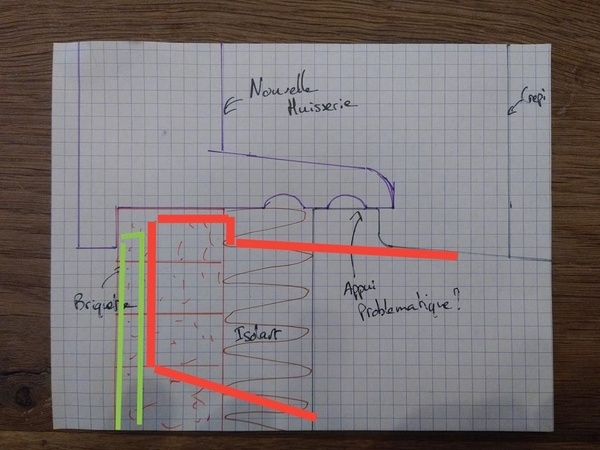 Nouvelle
Huisserie
Crepi
Briquette
Isolant
Appui
Problématique?